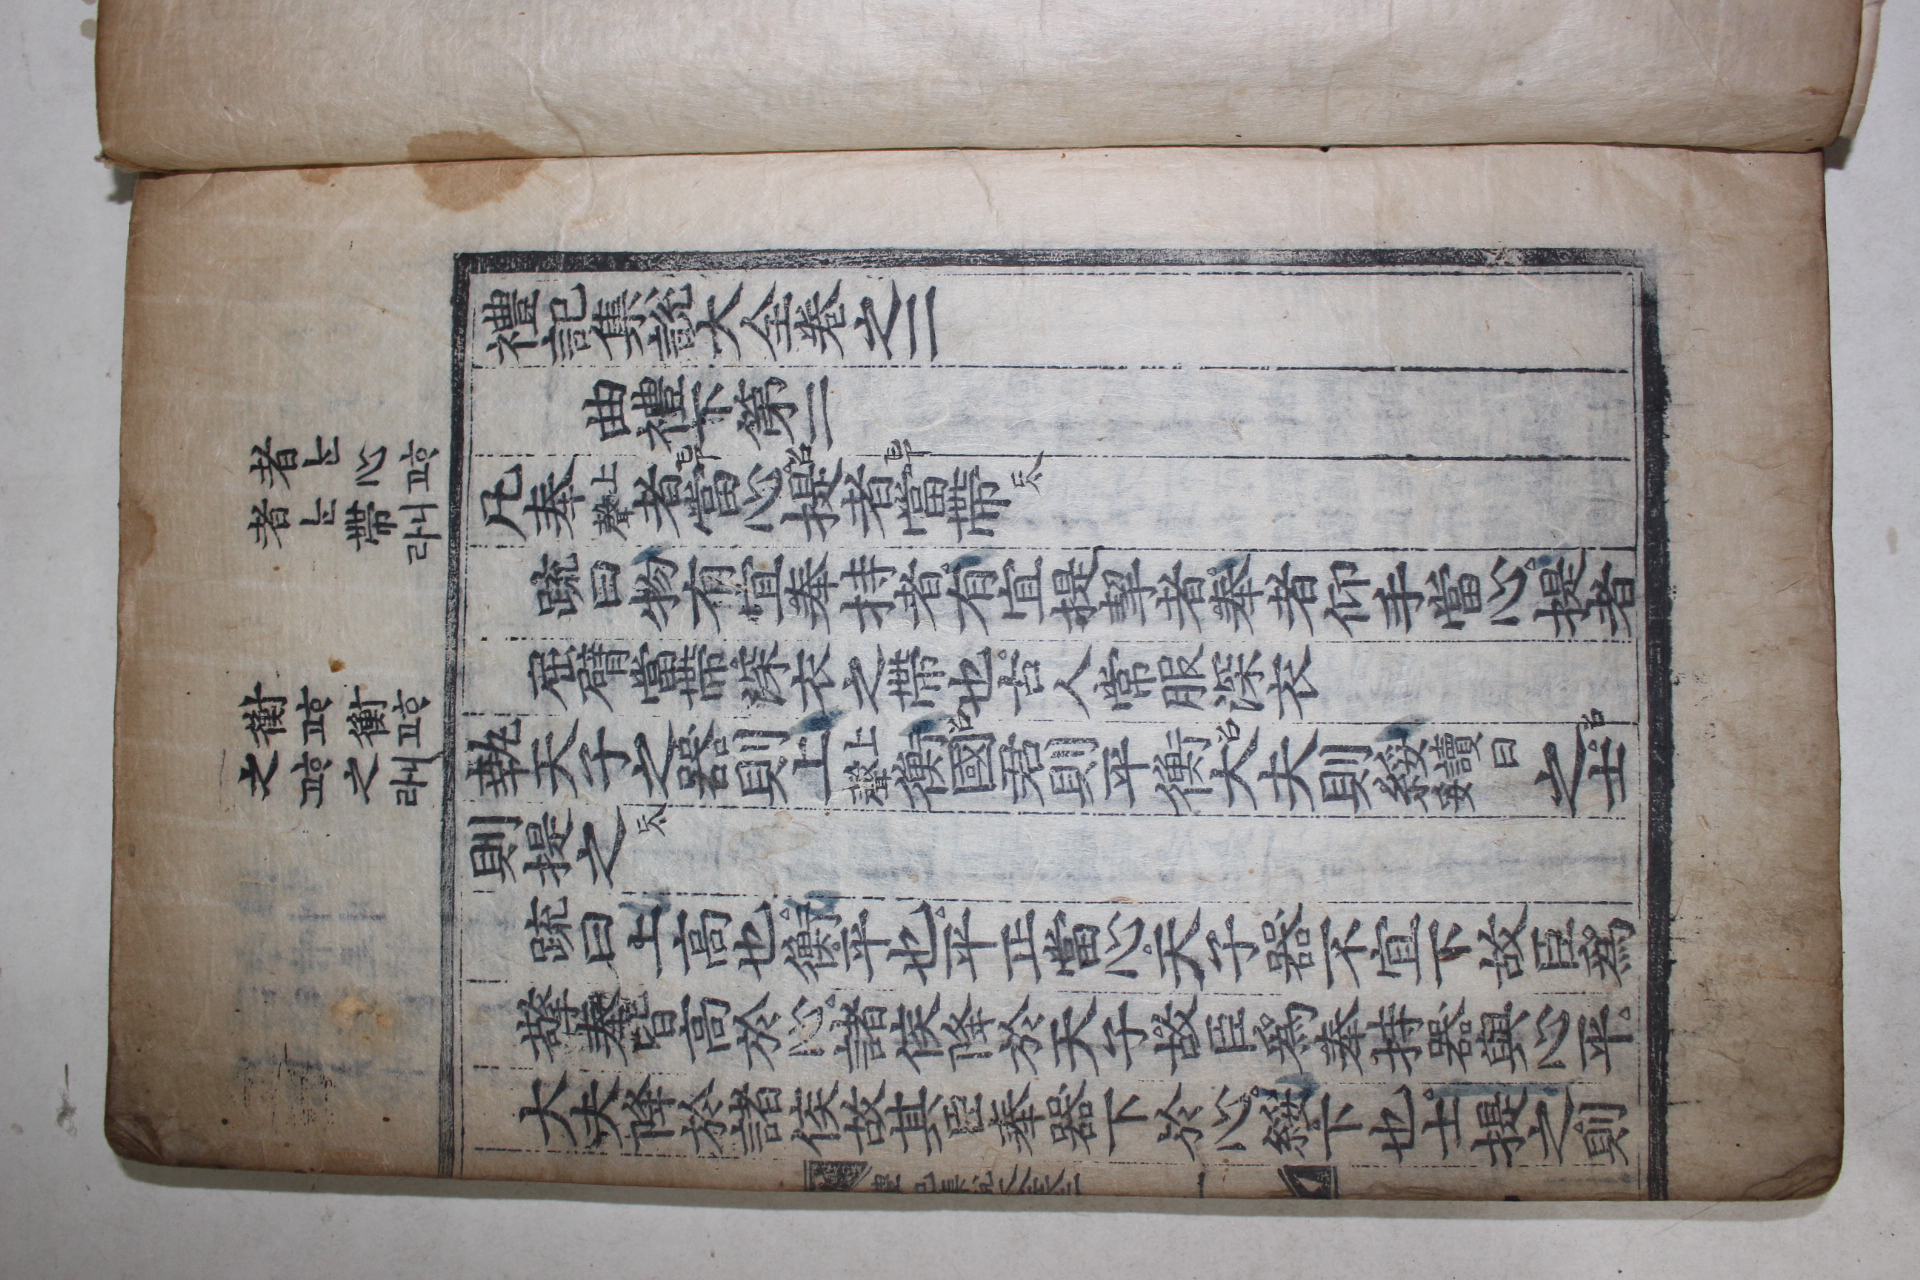 者는心고
者는帶라니
衡고衡고
之고之라니
禮記集說大全卷之二
曲禮下第二
凡奉上聲者當心提者當帶
疏曰物有宜奉持者有宜提挈者奉者仰手當心提者
屈臂當帶深衣之帶也古人常服深衣
執天子之器則上上聲衡國君則平衡大夫則綏讀曰妥之士
則提之
疏曰上高也衡平也平正當心天子器不宜下故臣爲
擎奉皆高於心諸侯降於天子故臣爲奉持器與心平
大夫降於諸侯故其臣奉器下於心綏下也士提之則
禮記集說大全卷二
一